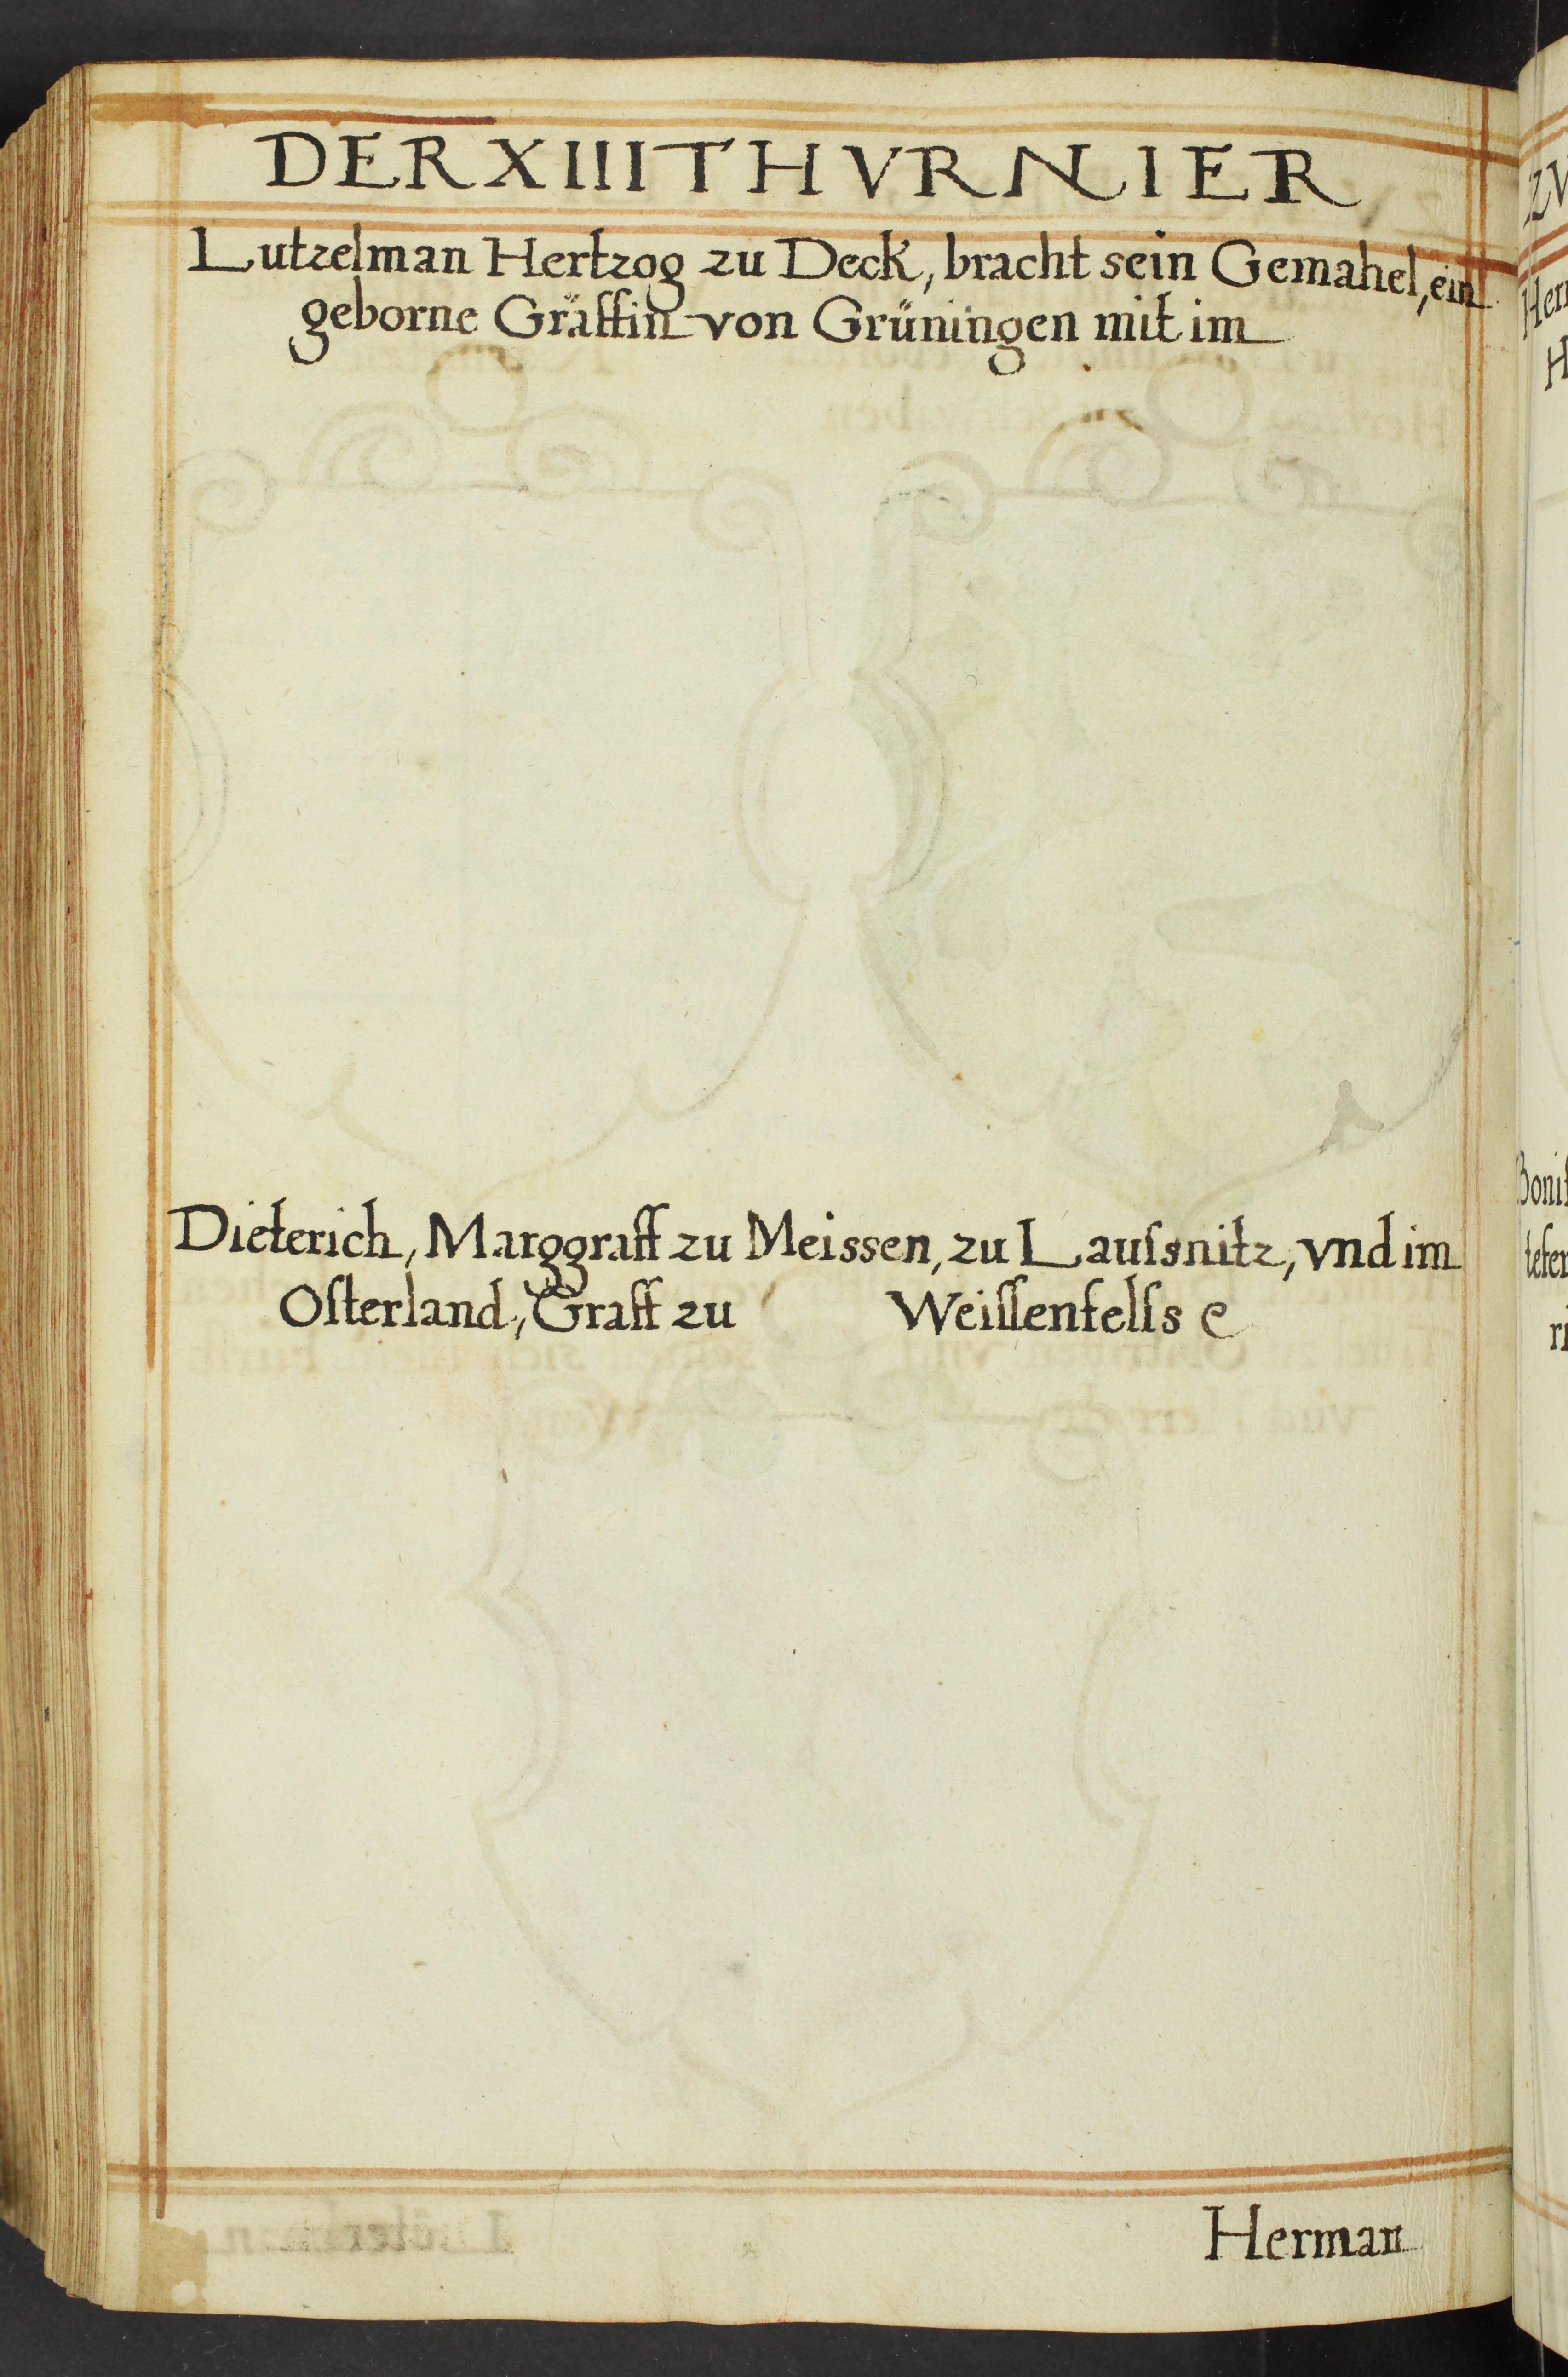 DER XIII THVRNIER
Lutzelman Hertzog zu Deck, bracht sein Gemahel, ein
geborne Gräffin von Grüningen mit im
Dieterich, Marggraff zu Meissen, zu Lauſsnitz, vnd im
Oſterland, Graff zu Weiſſenfelſs
Herman